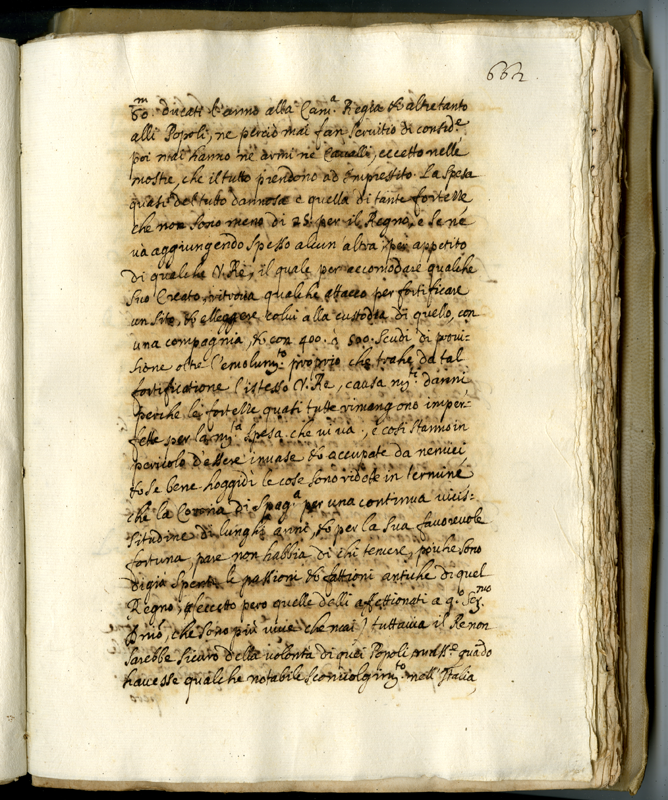 662.
m
60. ducati l'anno alla Cam.ª Regia & altretanto
alli Popoli, ne perciò mai fan seruitio di consid.e
poi mai hanno ne armi ne Caualli, eccetto nelle
mostre, che il tutto prendono ad impressito. La spesa
quasi del tutto dannosa e quella di tante fortezze
che non sono meno di 25. per il Regno, e se ne
ua aggiungendo spesso alcun altra, per appetito
di qualche V. Re, il quale per accomodare qualche
suo Creato, ritroua qualche attacco per fortificare
un sito, & elleggere colui alla custodia di quello, con
una compagnia, & con 400. ò 500. scudi di proui-
sione oltre l'emolum.to proprio che trahe da tal
fortificatione l'istesso V. Re, causa m.ti danni
perche le fortezze quasi tutte rimangono imper-
fette per la m.ta spesa che ui ua, e così stanno in
pericolo d'essere inuase & occupate da nemici
& se bene hoggidì le cose sono ridotte in termine
che la Corona di Spag.ª per una continua uicis-
situdine di lunghi anni, & per la sua fauoreuole
fortuna, pare non habbia di chi temere, poiche sono
digià spente le passioni & fattioni antiche di quel
Regno, eccetto però quelle delli affettionati a q.o Ser.mo
che sono più uiue che mai) tuttauia il Re non
sarebbe sicuro della uolontà di quei Popoli quãdo
hauesse qualche notabile sconuolgim.to nell'Italia,